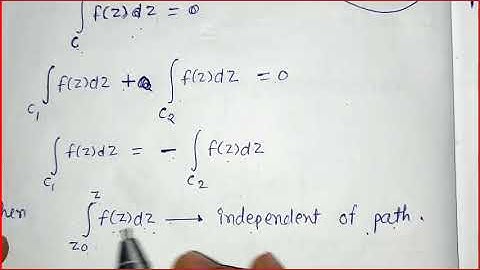 ∫_C f(z) dz = 0
∫_{C1} f(z)dz + ∫_{C2} f(z)dz = 0
∫_{C1} f(z)dz = - ∫_{C2} f(z)dz
∫_{z0}^{z} f(z)dz → independent of path.